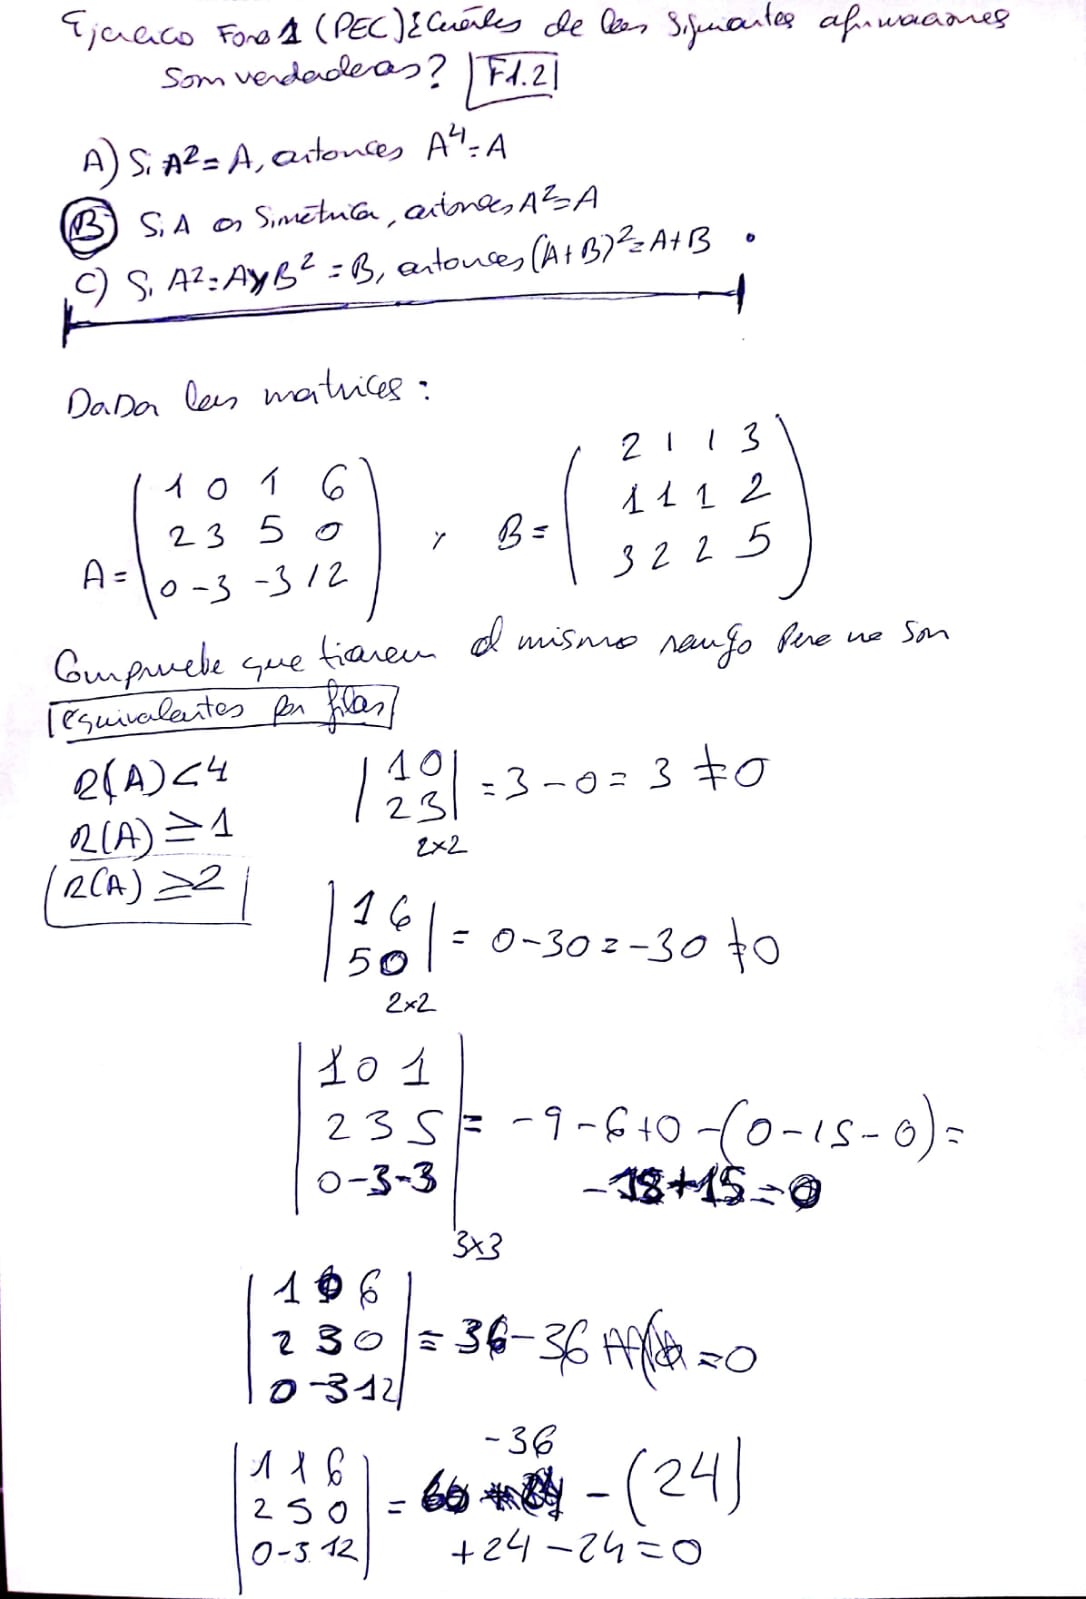 Ejercicio Foro 1 (PEC) ¿Cuáles de las siguientes afirmaciones
Son verdaderas? F1.2
A) Si A²= A, entonces A⁴= A
B) Si A es Simétrica, entonces A²=A
C) Si A²=A y B²=B, entonces (A+B)²=A+B .
Dada las matrices:
A= ( 1 0 1 6
2 3 5 0
0 -3 -3 12 )
y B= ( 2 1 1 3
1 1 1 2
3 2 2 5 )
Compruebe que tienen el mismo rango pero no son
equivalentes por filas
R(A)<4
R(A)≥1
R(A)≥2
|1 0
2 3| = 3-0= 3 ≠0
2x2
|1 6
5 0| = 0-30=-30 ≠0
2x2
|1 0 1
2 3 5
0 -3 -3| = -9-6+0-(0-15-0)=
-18+15=0
3x3
|1 0 6
2 3 0
0 -3 12| = 36-36 =0
|1 1 6
2 5 0
0 -3 12| = -36 -(24)
+24-24=0